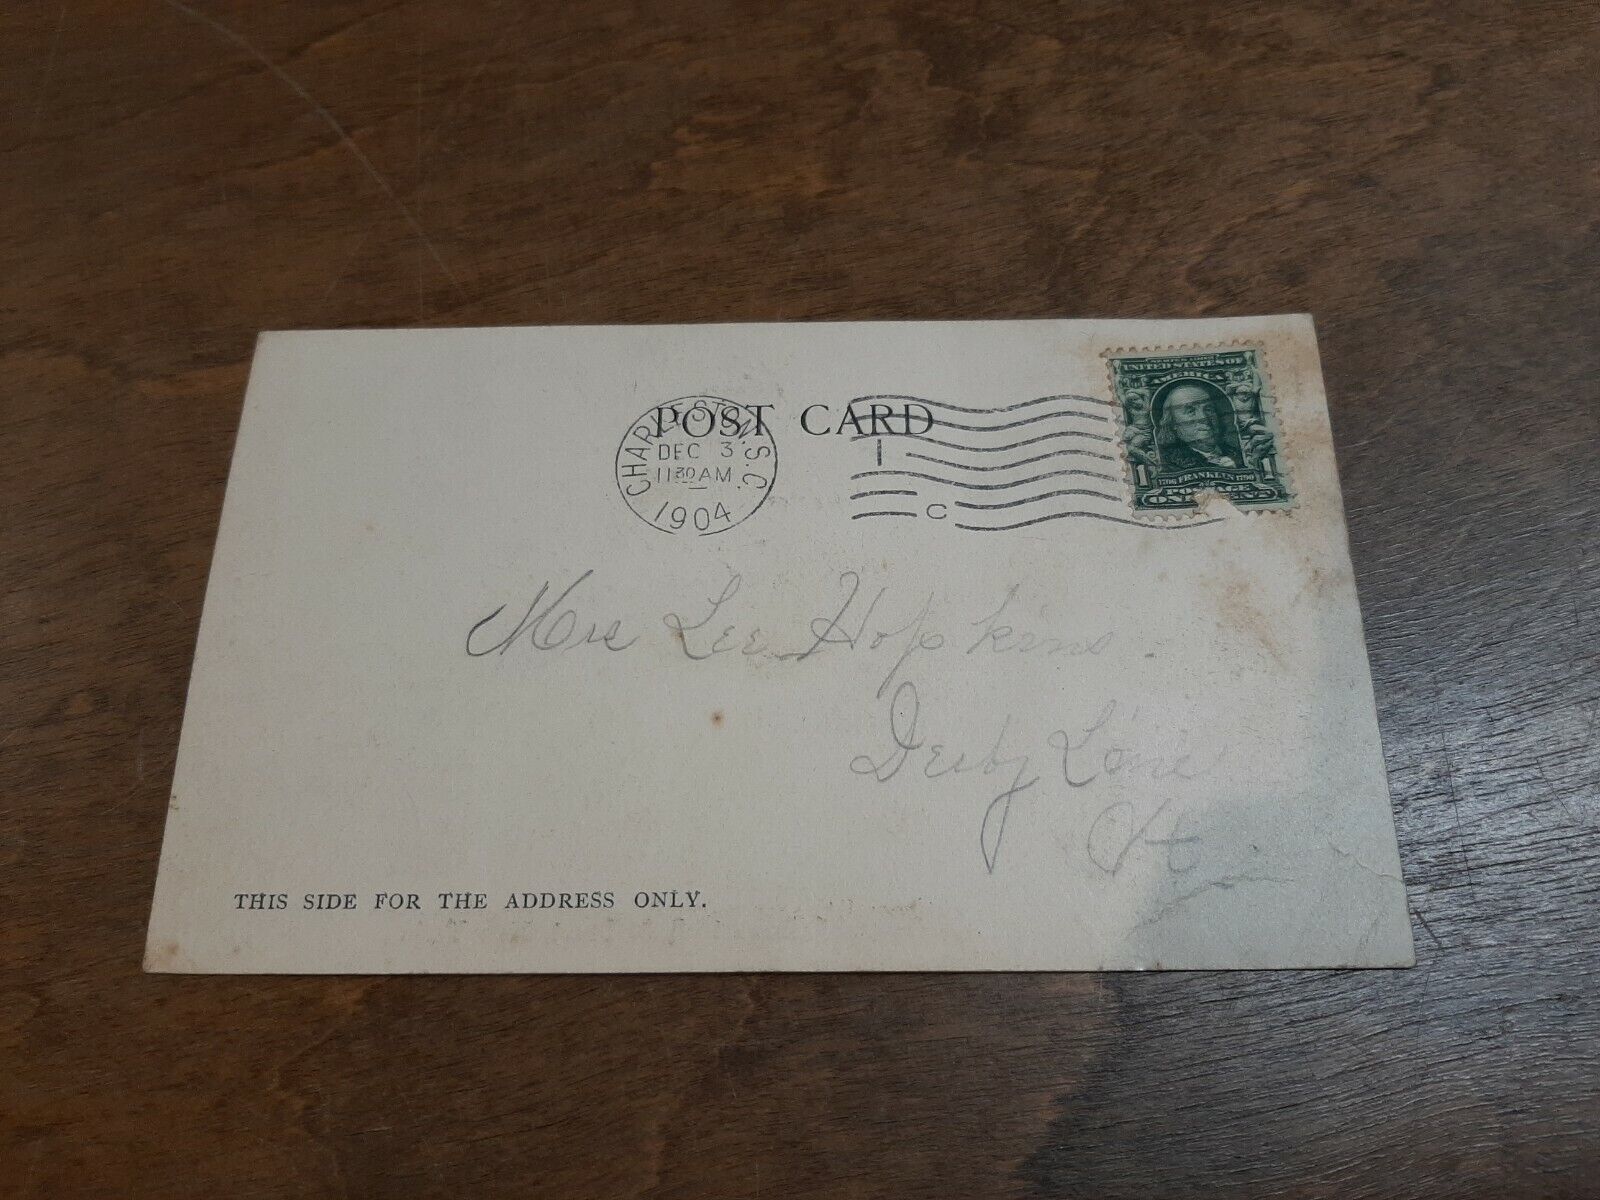 POST CARD
CHARLESTON, S.C.
DEC 3
11 30 AM
1904
1
C
SERIES 1902
UNITED STATES OF
AMERICA
1 1
1706 FRANKLIN 1790
POSTAGE
ON CENT
Mrs Lee Hopkins.
Derby Line
Vt
THIS SIDE FOR THE ADDRESS ONLY.